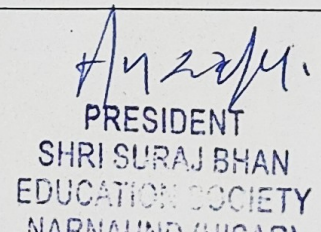 PRESIDENT
SHRI SURAJ BHAN
EDUCATION SOCIETY
NARNAUND (HISAR)